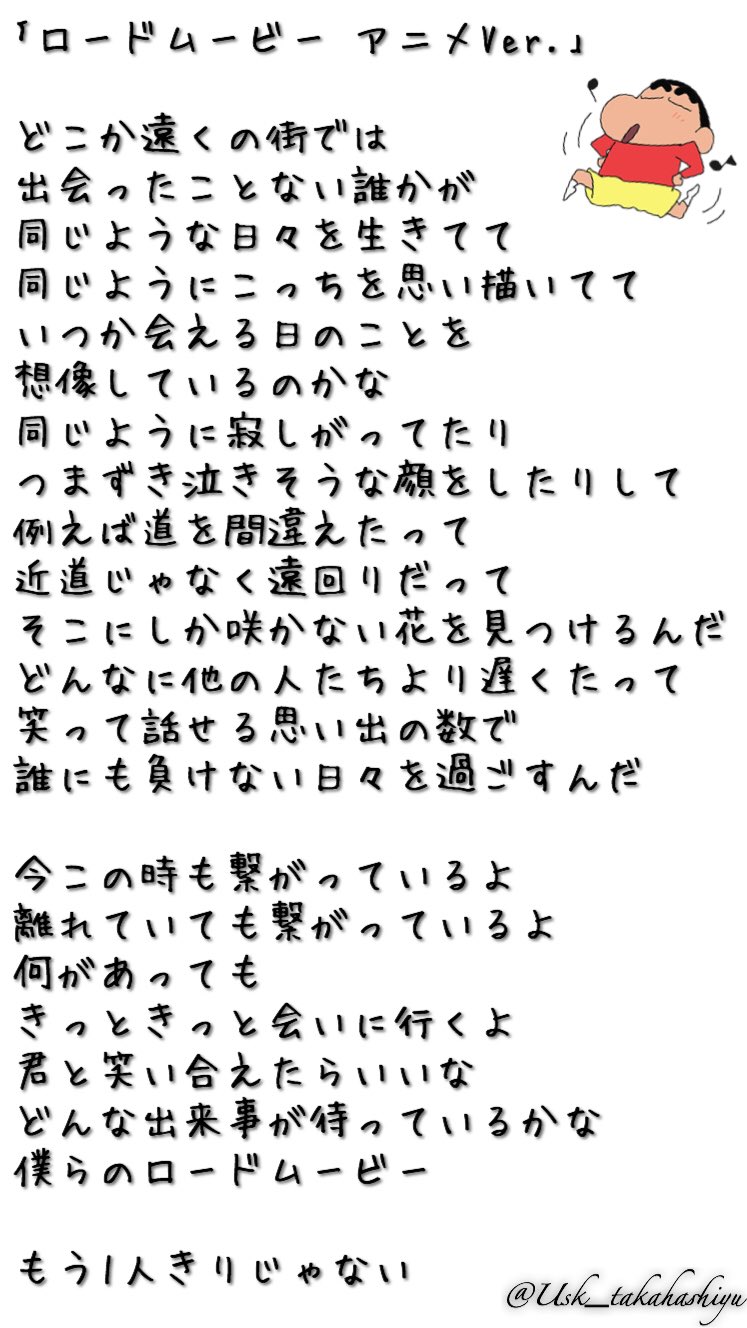 「ロードムービー アニメVer.」
どこか遠くの街では
出会ったことない誰かが
同じような日々を生きてて
同じようにこっちを思い描いてて
いつか会える日のことを
想像しているのかな
同じように寂しがってたり
つまずき泣きそうな顔をしたりして
例えば道を間違えたって
近道じゃなく遠回りだって
そこにしか咲かない花を見つけるんだ
どんなに他の人たちより遅くたって
笑って話せる思い出の数で
誰にも負けない日々を過ごすんだ
今この時も繋がっているよ
離れていても繋がっているよ
何があっても
きっときっと会いに行くよ
君と笑い合えたらいいな
どんな出来事が待っているかな
僕らのロードムービー
もう1人きりじゃない
@Usk_takahashiyu